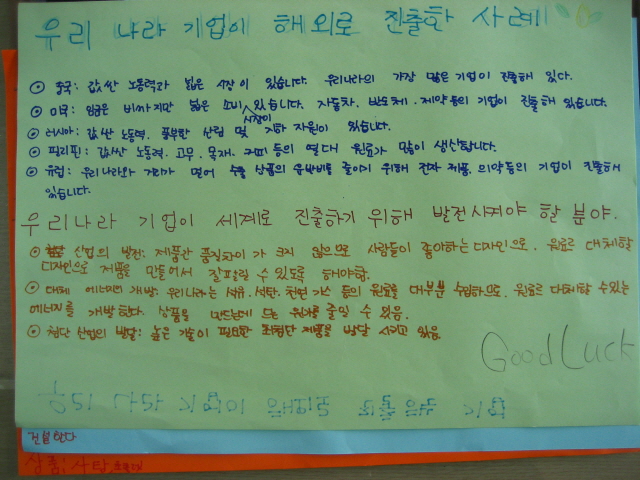 우리 나라 기업이 해외로 진출한 사례!
⊙ 중국: 값싼 노동력과 넓은 시장이 있습니다. 우리나라의 가장 많은 기업이 진출해 있다.
⊙ 미국: 임금은 비싸지만 넓은 소비시장이 있습니다. 자동차. 반도체. 제약 등의 기업이 진출해 있습니다.
⊙ 러시아: 값싼 노동력. 풍부한 산림 및 지하 자원이 있습니다.
⊙ 필리핀: 값싼 노동력. 고무. 목재. 커피 등의 열대 원료가 많이 생산됩니다.
⊙ 유럽: 우리나라와 거리가 멀어 수출 상품의 운반비를 줄이기 위해 전자 제품. 의약등의 기업이 진출해
있습니다.
우리나라 기업이 세계로 진출하기 위해 발전시켜야 할 분야.
⊙ 산업의 발전: 제품간 품질차이가 크지 않으므로 사람들이 좋아하는 디자인으로. 원료로 대체할
디자인으로 제품을 만들어서 잘팔릴 수 있도록 해야함.
⊙ 대체 에너지의 개발: 우리나라는 석유. 석탄. 천연 가스 등의 원료를 대부분 수입하므로. 원료로 대체할 수 있는
에너지를 개발한다. 상품을 만드는데 드는 원가를 줄일 수 있음.
⊙ 첨단 산업의 발달: 높은 기술이 필요한 최첨단 제품을 발달 시키고 있음
Good Luck
우리 나라 기업이 해외로 진출 기업
건설한다
상품: 사탕,